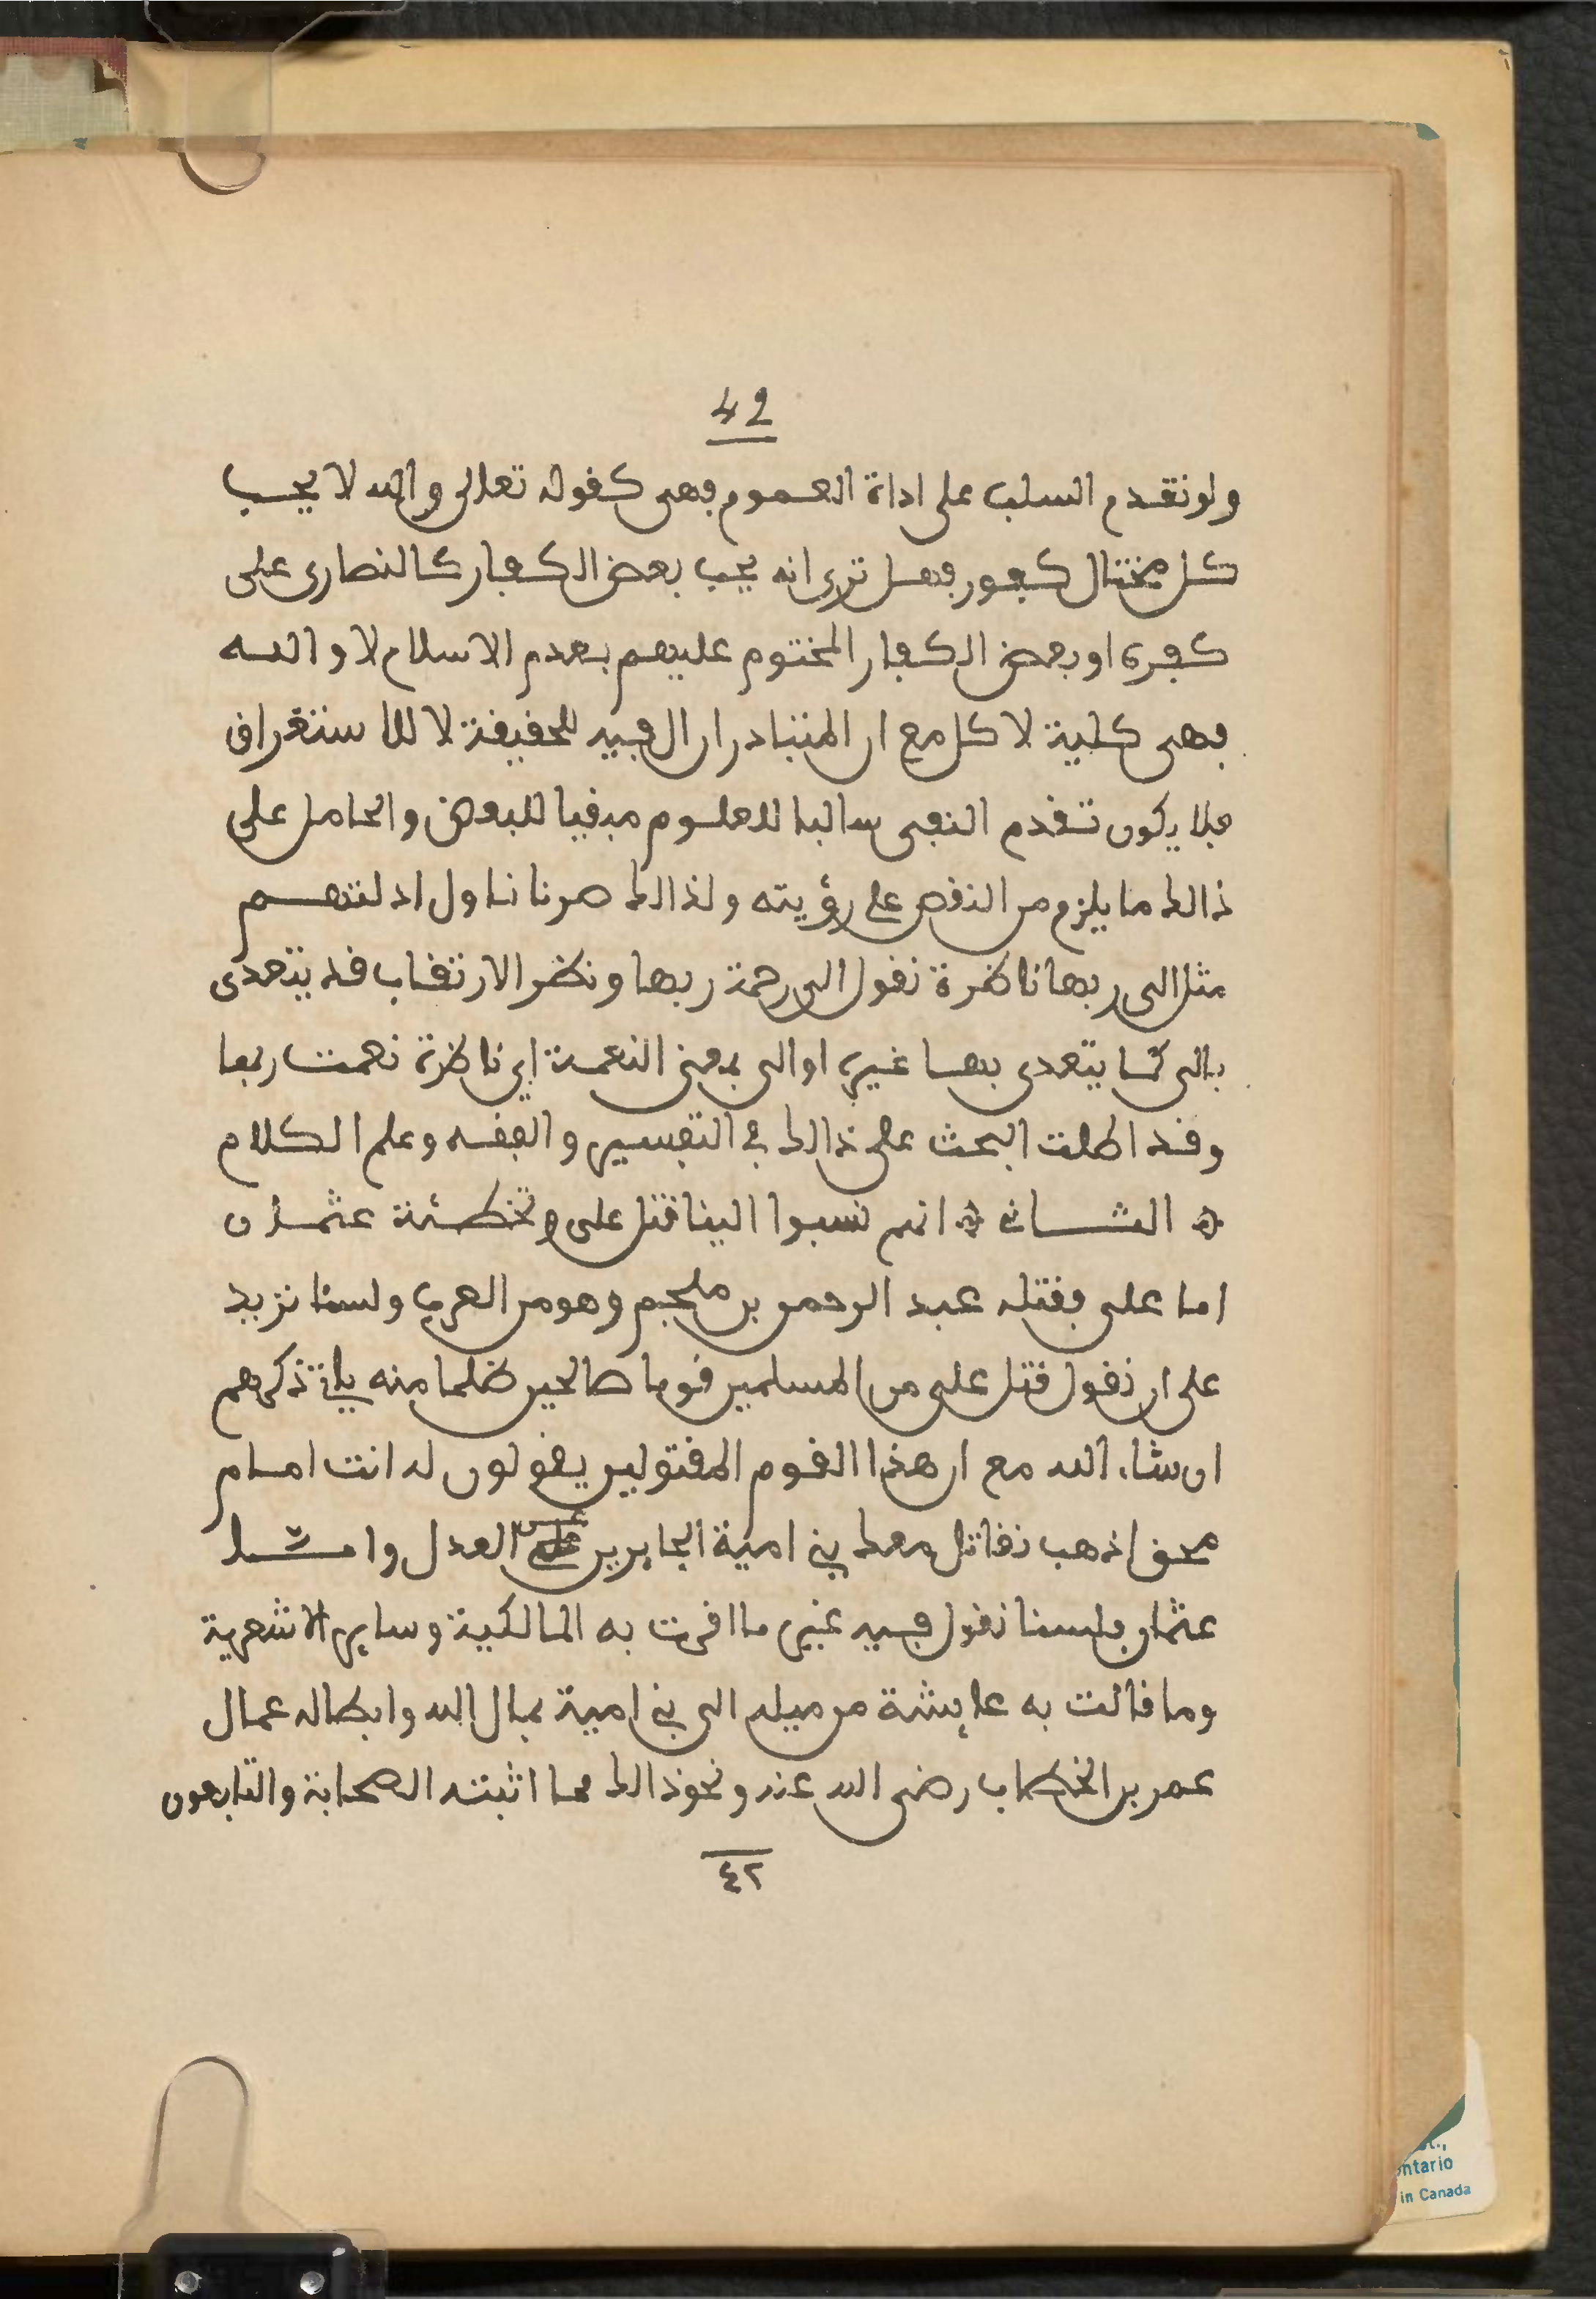 42
ولو تقدم السلب على اداة العموم فهى كقوله تعلى والله لا يحب
كل مختال كفور فهل ترى انه يحب بعض الكفار كالنصارى على
كفره او بعض الكفار المختوم عليهم بعدم الاسلام لا والله
فهى كلية لا كل مع ان المتبادر ان ال فيه للحقيقة لا للاستغراق
فلا يكون تقدم النفى سالبا للعموم مبقيا للبعض والحامل على
ذالك ما يلزم من النقص على رؤيته ولذالك صرنا ناول ادلتهم
مثل الى ربها ناظرة نقول الى رحمة ربها ونظر الارتقاب قد يتعدى
بالى كما يتعدى بها غيره او الى بمعنى النعمة اي ناظرة نعمت ربها
وقد اطلت البحث على ذالك في التفسير والفقه وعلم الكلام
الثـــانى انهم نسبوا الينا قتل على وتخطئة عثمان
اما على فقتله عبد الرحمن بن ملجم وهو من العرب ولسنا نزيد
على ان نقول قتل على من المسلمين قوما صالحين ظلما منه ياتى ذكرهم
ان شاء الله مع ان هذا القوم المقتولين يقولون له انت امام
محق اذهب نقاتل معك بني امية الجايرين عن العدل وامـــا
عثمان فلسنا نقول فيه غير ما اقرت به المالكية وساير الاشعرية
وما قالت به عايشة من ميله الى بني امية بمال الله وابطاله عمال
عمر بن الخطاب رضى الله عنه ونحو ذالك مما اثبته الصحابة والتابعون
٤٢
ontario
in Canada